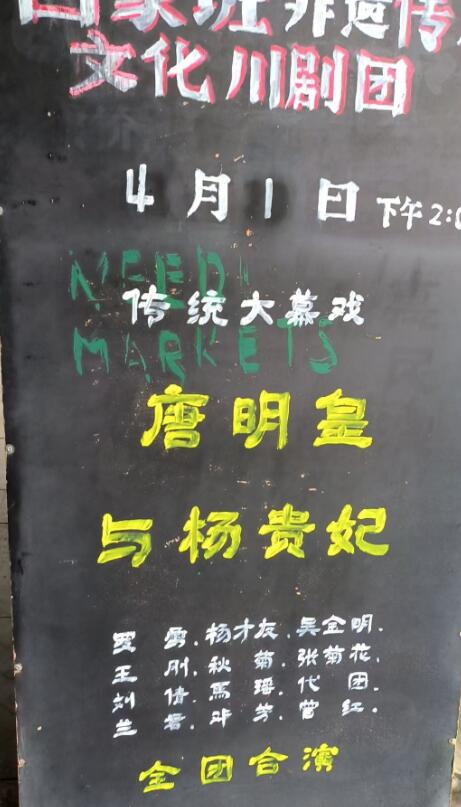 班非遗传
文化川剧团
4月1日 下午2:0
NEED
传统大幕戏
MARKETS
唐明皇
与杨贵妃
罗勇.杨才友.吴金明.
王刚.秋菊.张菊花.
刘倩.馬瑶.代团.
兰君.邓芳.曾红.
全团合演